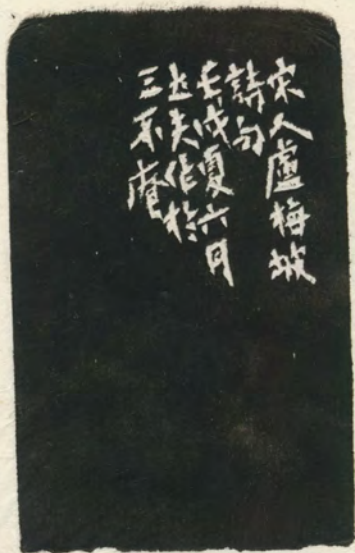 宋人盧梅坡
詩句
壬戌夏六月
夫作於
三不庵